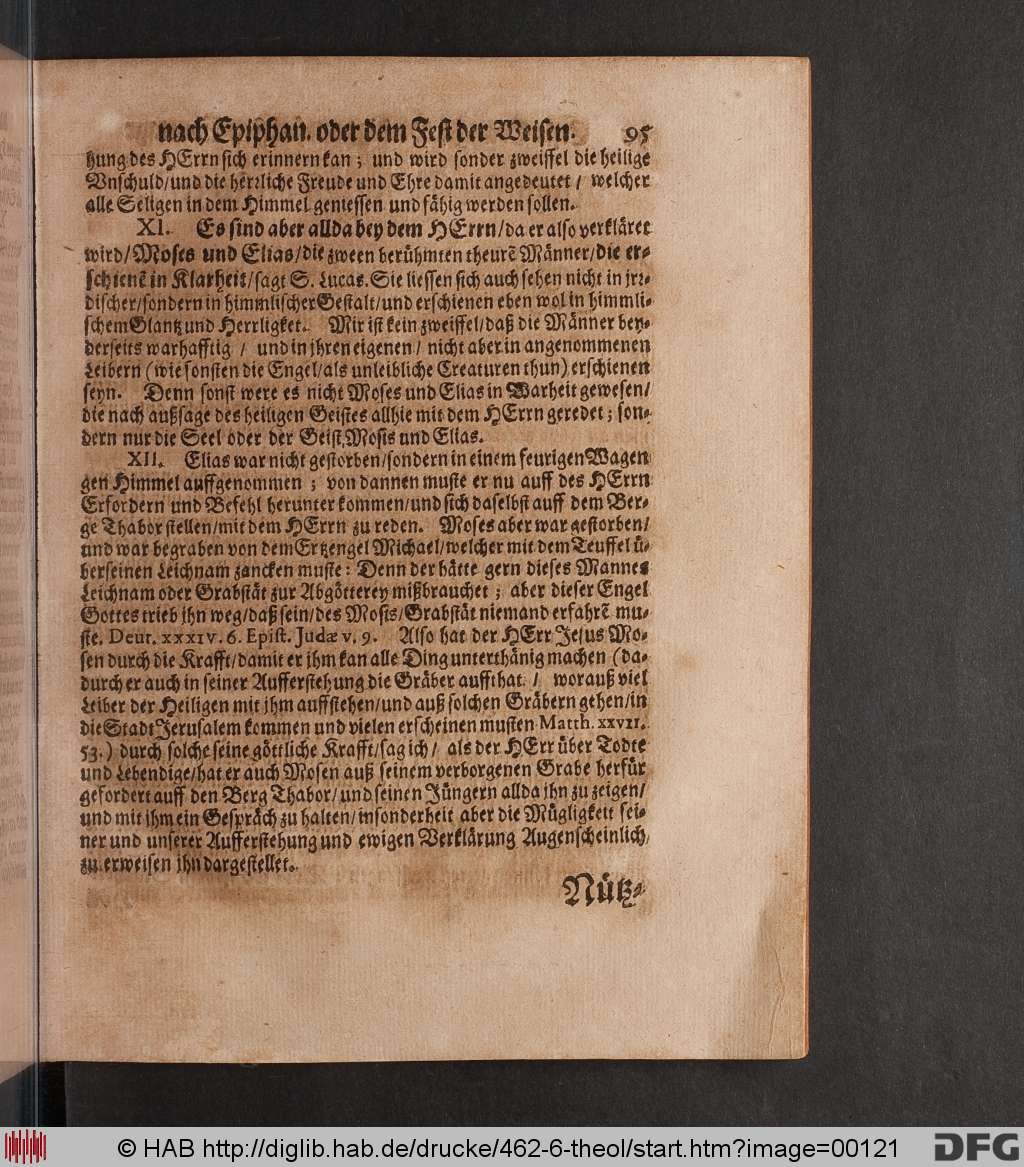 nach Epiphan. oder dem Fest der Weisen. 95
hung des HErrn sich erinnern kan; und wird sonder zweiffel die heilige
Vnschuld/und die herrliche Freude und Ehre damit angedeutet / welcher
alle Seligen in dem Himmel geniessen und fähig werden sollen.
XI. Es sind aber allda bey dem HErrn/da er also verkläret
wird/Moses und Elias/die zween berühmten theurē Männer/die er-
schienē in Klarheit/sagt S. Lucas. Sie liessen sich auch sehen nicht in jrr-
discher/sondern in himmlischer Gestalt/und erschienen eben wol in himmli-
schem Glantz und Herrligket. Mir ist kein zweiffel/daß die Männer bey-
derseits warhafftig / und in jhren eigenen/ nicht aber in angenommenen
Leibern (wie sonsten die Engel/als unleibliche Creaturen thun) erschienen
seyn. Denn sonst were es nicht Moses und Elias in Warheit gewesen/
die nach außsage des heiligen Geistes allhie mit dem HErrn geredet; son-
dern nur die Seel oder der Geist Mosis und Elias.
XII. Elias war nicht gestorben/sondern in einem feurigen Wagen
gen Himmel auffgenommen ; von dannen muste er nu auff des HErrn
Erfordern und Befehl herunter kommen/und sich daselbst auff dem Ber-
ge Thabor stellen/mit dem HErrn zu reden. Moses aber war gestorben/
und war begraben von dem Ertzengel Michael/welcher mit dem Teuffel ü-
ber seinen Leichnam zancken muste: Denn der hätte gern dieses Mannes
Leichnam oder Grabstät zur Abgötterey mißbrauchet ; aber dieser Engel
Gottes trieb jhn weg/daß sein/des Mosis/Grabstät niemand erfahrē mu-
ste, Deut. XXXIV. 6. Epist. Judæ v. 9. Also hat der HErr Jesus Mo-
sen durch die Krafft/damit er jhm kan alle Ding unterthänig machen (da-
durch er auch in seiner Aufferstehung die Gräber auffthat / worauß viel
Leiber der Heiligen mit jhm auffstehen/und auß solchen Gräbern gehen/in
die Stadt Jerusalem kommen und vielen erscheinen musten Matth. XXVII.
53.) durch solche seine göttliche Krafft/sag ich/ als der HErr über Todte
und Lebendige/hat er auch Mosen auß seinem verborgenen Grabe herfür
gefordert auff den Berg Thabor/und seinen Jüngern allda jhn zu zeigen/
und mit jhm ein Gespräch zu halten/insonderheit aber die Mügligkeit sei-
ner und unserer Aufferstehung und ewigen Verklärung Augenscheinlich
zu erweisen jhn dargestellet.
Nütz-
© HAB http://diglib.hab.de/drucke/462-6-theol/start.htm?image=00121
DFG